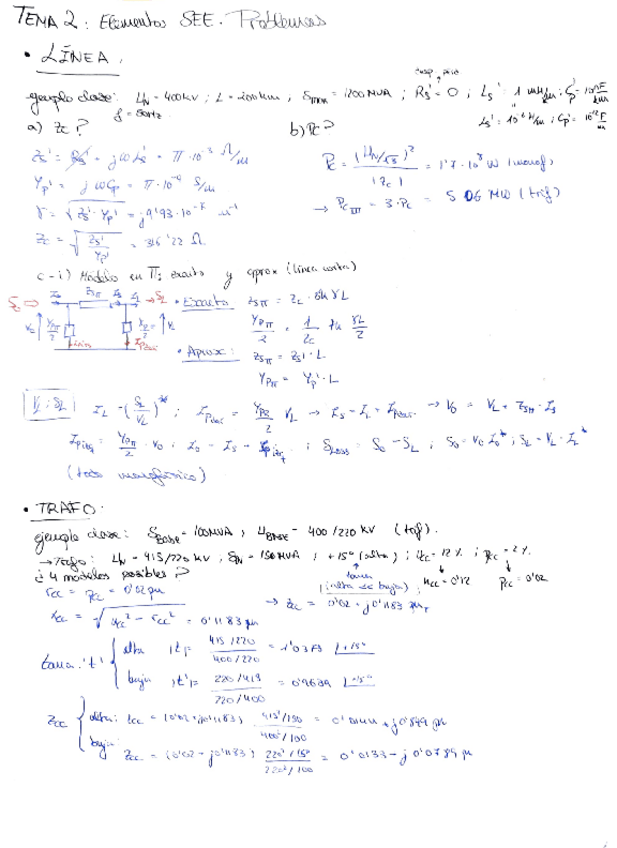 TEMA 2: Elementos SEE. Problemas
• LÍNEA.
ejemplo clase: UN = 400kV ; L = 200km ; Smax = 1200MVA ; Rs' = 0 ; Ls' = 1 mH/km ; Cp' = 10 nF/km
f = 50Hz Ls' = 10^-6 H/m ; Cp' = 10^-12 F/m
a) Zc? b) Pc?
Zs' = Rs' + jωLs' = π·10^-3 Ω/m
Pc = (UN/√3)² / |Zc| = 1'7·10^8 W (monof)
Yp' = jωCp = π·10^-9 S/m
→ PcIII = 3·Pc = 506 MW (trif)
γ = √(Zs'·Yp') = j9'93·10^-7 m^-1
Zc = √(Zs'/Yp') = 316'22 Ω
c-i) Modelo en π: exacto y aprox (línea corta)
• Exacto ZSπ = Zc · sh γL
YPπ/2 = 1/Zc th γL/2
• Aprox: ZSπ = Zs'·L
YPπ = Yp'·L
VL; SL IL = (SL/VL)* ; IPder = YPπ/2 VL → IS = IL + IPder → V0 = VL + ZSπ·IS
IPizq = YPπ/2 · V0 ; I0 = IS + IPizq ; Sloss = S0 - SL ; S0 = V0 I0* ; SL = VL·IL*
(todo monofásico)
• TRAFO.
ejemplo clase: SBASE = 100MVA, UBASE = 400/220 kV (trif).
→ Trafo: UN = 415/220 kV, SN = 150MVA, +15º (alta) ; εcc = 12 %, ρcc = 2 %
¿4 modelos posibles?
rcc = ρcc = 0'02 pu
→ zcc = 0'02 + j0'1183 pu
xcc = √(εcc² - rcc²) = 0'1183 pu
toma 't' alta |t| = 415/220 / 400/220 = 1'0375 ∟+15º
baja |t'| = 220/415 / 220/400 = 0'9639 ∟-15º
Zcc alta: zcc = (0'02 + j0'1183) 415²/150 / 400²/100 = 0'0144 + j0'849 pu
baja: zcc = (0'02 + j0'1183) 220²/150 / 220²/100 = 0'0133 + j0'0789 pu